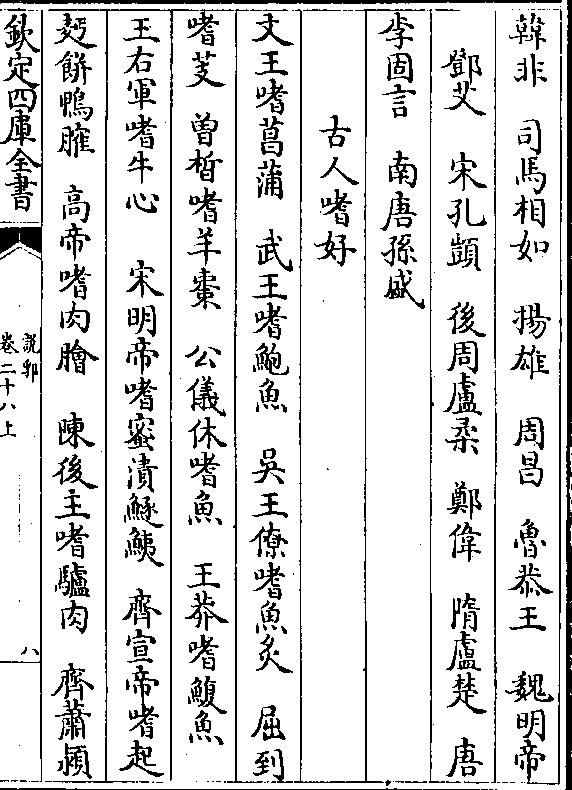 韓非　司馬相如　揚雄　周昌　魯恭王　魏明帝
鄧艾　宋孔顗　後周盧柔　鄭偉　隋盧楚　唐
李固言　南唐孫晟
古人嗜好
文王嗜菖蒲　武王嗜鮑魚　吳王僚嗜魚炙　屈到
嗜芰　曾晳嗜羊棗　公儀休嗜魚　王莽嗜鰒魚
王右軍嗜牛心　宋明帝嗜蜜漬鱁鮧　齊宣帝嗜起
麫餅鴨臛　高帝嗜肉膾　陳後主嗜驢肉　齊蕭頴
欽定四庫全書
說郛
卷二十八上
八